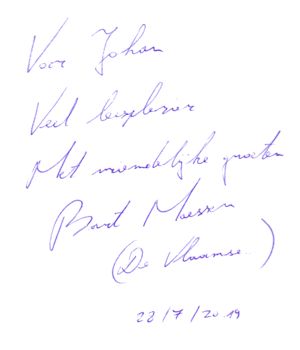 Voor Johan
Veel leesplezier
Met vriendelijke groeten
Bart Moessen
(De Vlaamse...)
22/7/2019